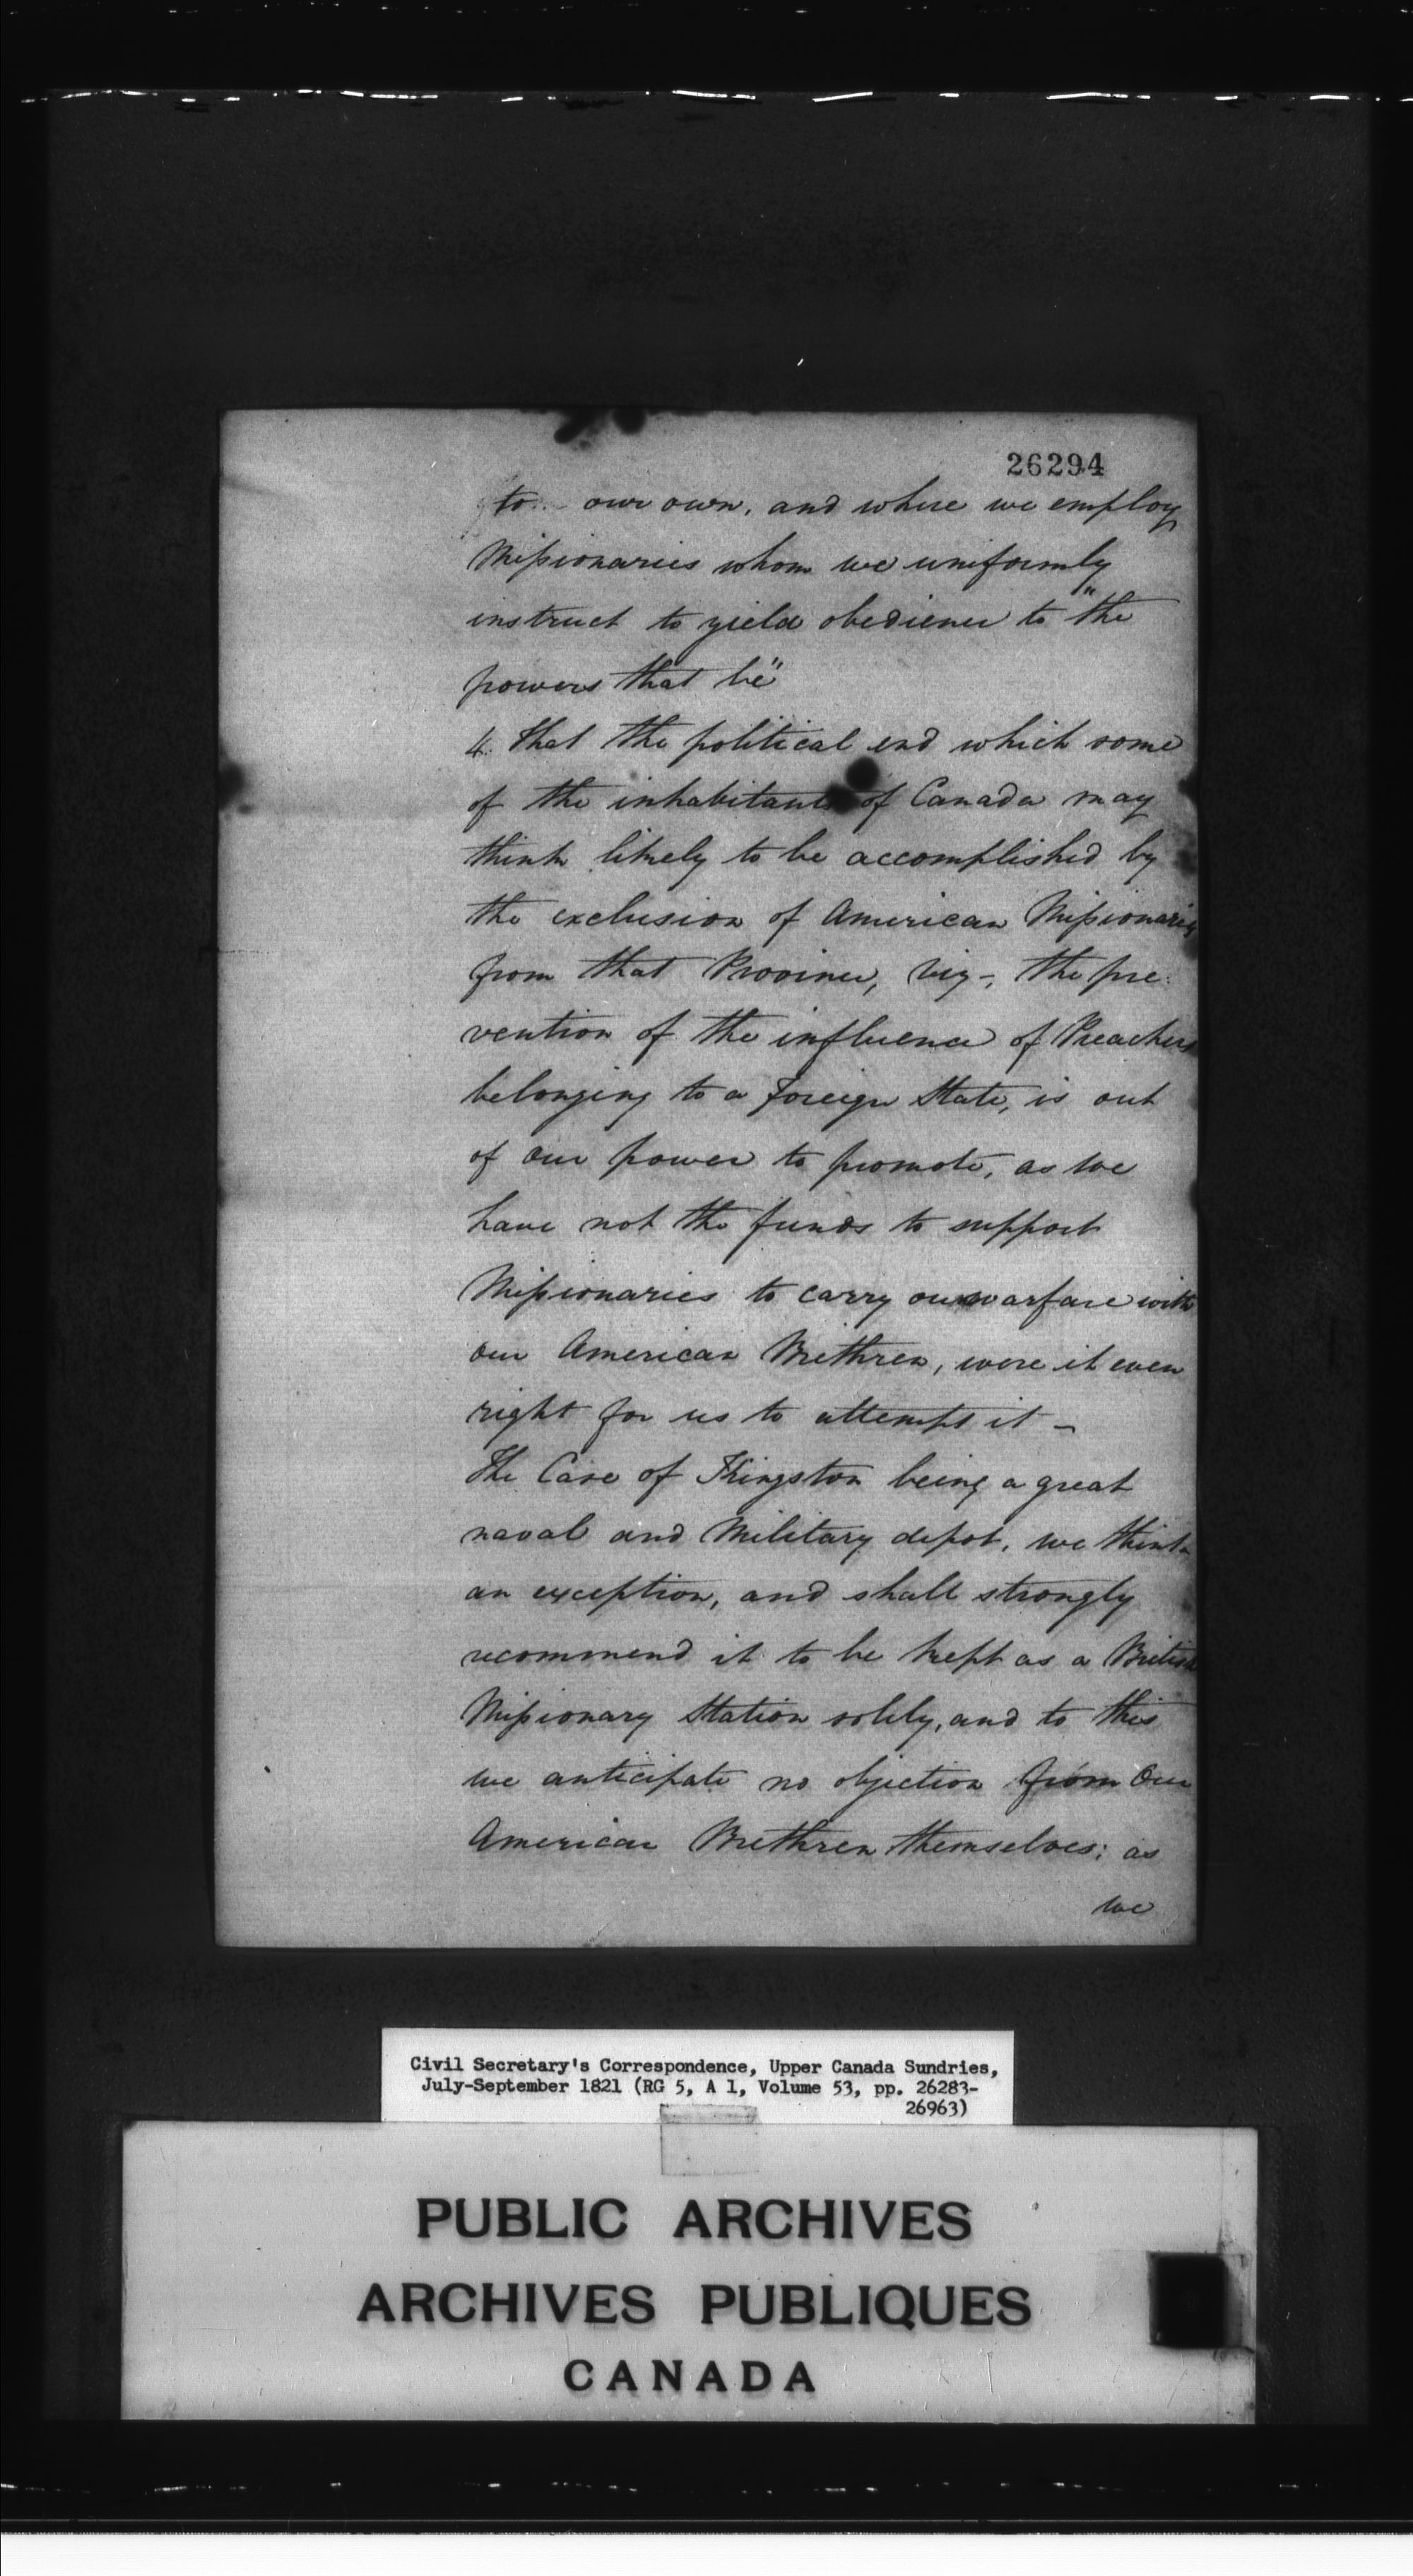 26294
to our own, and where we employ
Missionaries whom we uniformly
instruct to yield obedience to "the
powers that be"
4. that the political end which some
of the inhabitants of Canada may
think likely to be accomplished by
the exclusion of American Missionaries
from that Province, viz-, the pre-
vention of the influence of Preachers
belonging to a foreign State, is out
of our power to promote, as we
have not the funds to support
Missionaries to carry on warfare with
our American Brethren, were it even
right for us to attempt it -
The Case of Kingston being a great
naval and Military depot, we think
an exception, and shall strongly
recommend it to be kept as a British
Missionary Station solely, and to this
we anticipate no objection from Our
American Brethren themselves; as
we
Civil Secretary's Correspondence, Upper Canada Sundries,
July-September 1821 (RG 5, A 1, Volume 53, pp. 26283-
26963)
PUBLIC ARCHIVES
ARCHIVES PUBLIQUES
CANADA